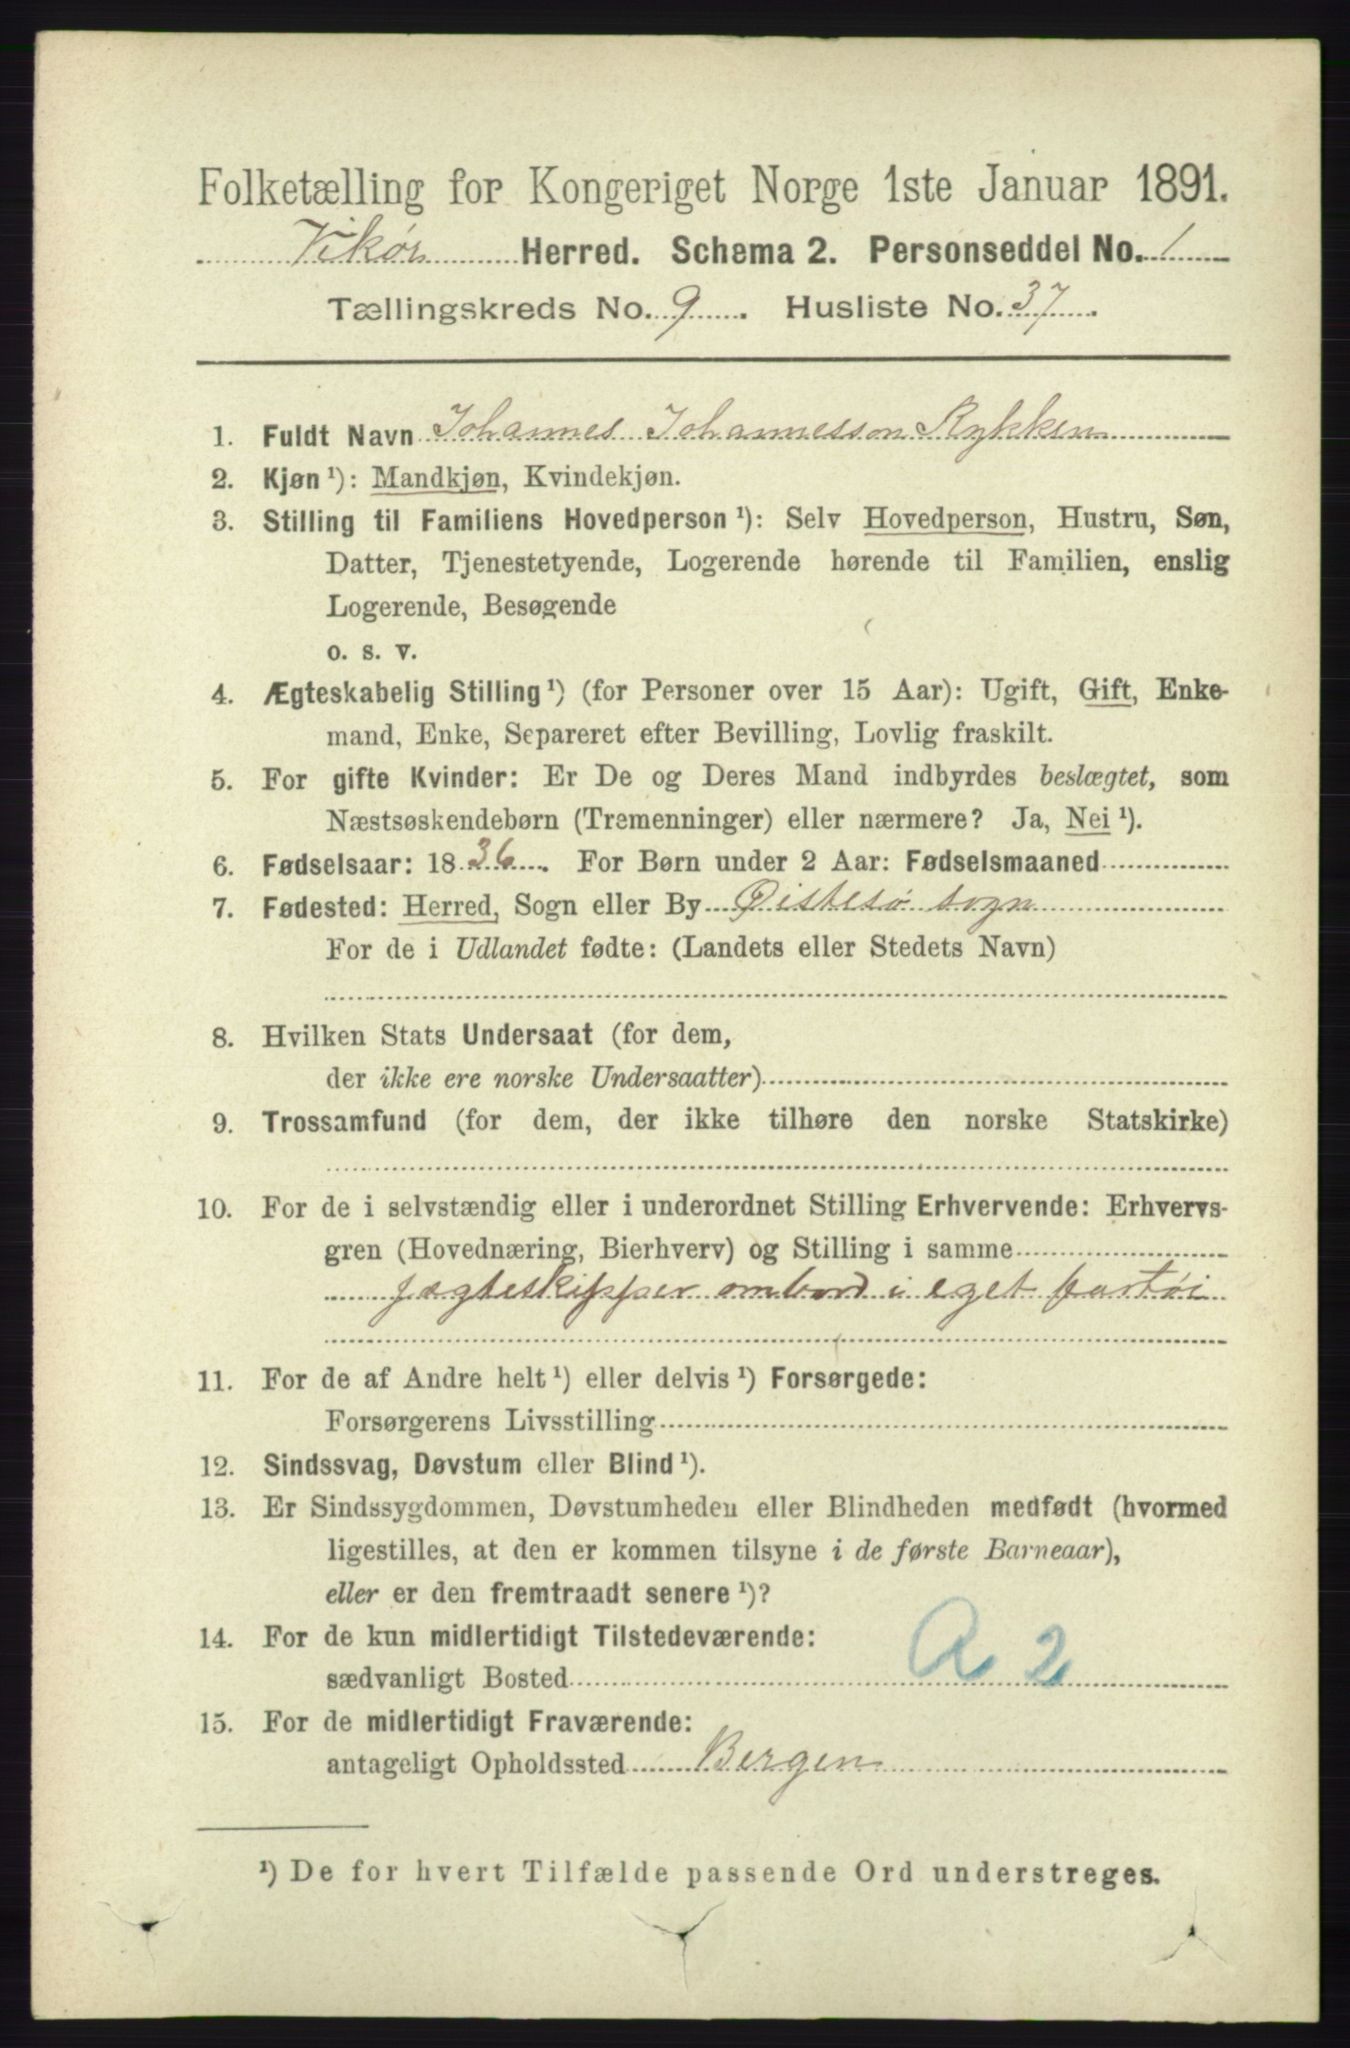 Folketælling for Kongeriget Norge 1ste Januar 1891.
Vikør Herred. Schema 2. Personseddel No. 1
Tællingskreds No. 9. Husliste No. 37.
1. Fuldt Navn Johannes Johannesson Rykken
2. Kjøn¹): Mandkjøn, Kvindekjøn.
3. Stilling til Familiens Hovedperson¹): Selv Hovedperson, Hustru, Søn,
Datter, Tjenestetyende, Logerende hørende til Familien, enslig
Logerende, Besøgende
o. s. v.
4. Ægteskabelig Stilling¹) (for Personer over 15 Aar): Ugift, Gift, Enke-
mand, Enke, Separeret efter Bevilling, Lovlig fraskilt.
5. For gifte Kvinder: Er De og Deres Mand indbyrdes beslægtet, som
Næstsøskendebørn (Tremenninger) eller nærmere? Ja, Nei¹).
6. Fødselsaar: 1836. For Børn under 2 Aar: Fødselsmaaned
7. Fødested: Herred, Sogn eller By Øistesø sogn
For de i Udlandet fødte: (Landets eller Stedets Navn)
8. Hvilken Stats Undersaat (for dem,
der ikke ere norske Undersaatter)
9. Trossamfund (for dem, der ikke tilhøre den norske Statskirke)
10. For de i selvstændig eller i underordnet Stilling Erhvervende: Erhvervs-
gren (Hovednæring, Bierhverv) og Stilling i samme
jægteskipper ombord i eget fartøi
11. For de af Andre helt¹) eller delvis¹) Forsørgede:
Forsørgerens Livsstilling
12. Sindssvag, Døvstum eller Blind¹).
13. Er Sindssygdommen, Døvstumheden eller Blindheden medfødt (hvormed
ligestilles, at den er kommen tilsyne i de første Barneaar),
eller er den fremtraadt senere¹)?
14. For de kun midlertidigt Tilstedeværende:
sædvanligt Bosted R 2
15. For de midlertidigt Fraværende:
antageligt Opholdssted Bergen
¹) De for hvert Tilfælde passende Ord understreges.